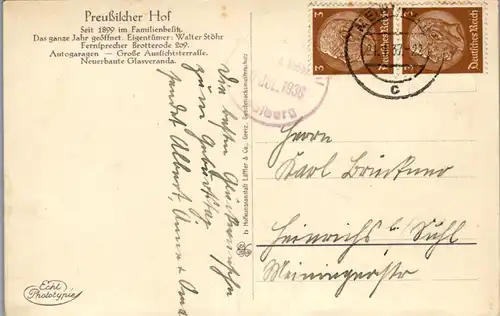 Preußischer Hof
Seit 1899 im Familienbesitz.
Das ganze Jahr geöffnet. Eigentümer: Walter Stöhr
Fernsprecher Brotterode 209.
Autogaragen — Große Aussichtsterrasse.
Neuerbaute Glasveranda.
Die besten Glückwünsche
zum Geburtstag
sendet Albert, Anna +
Echt
Phototypie
Löffler & Co., Greiz,
1936
3 Deutsches Reich
3 Deutsches Reich
C
Herrn
Karl Brückner
Heinrichs b/ Suhl
Meiningerstr